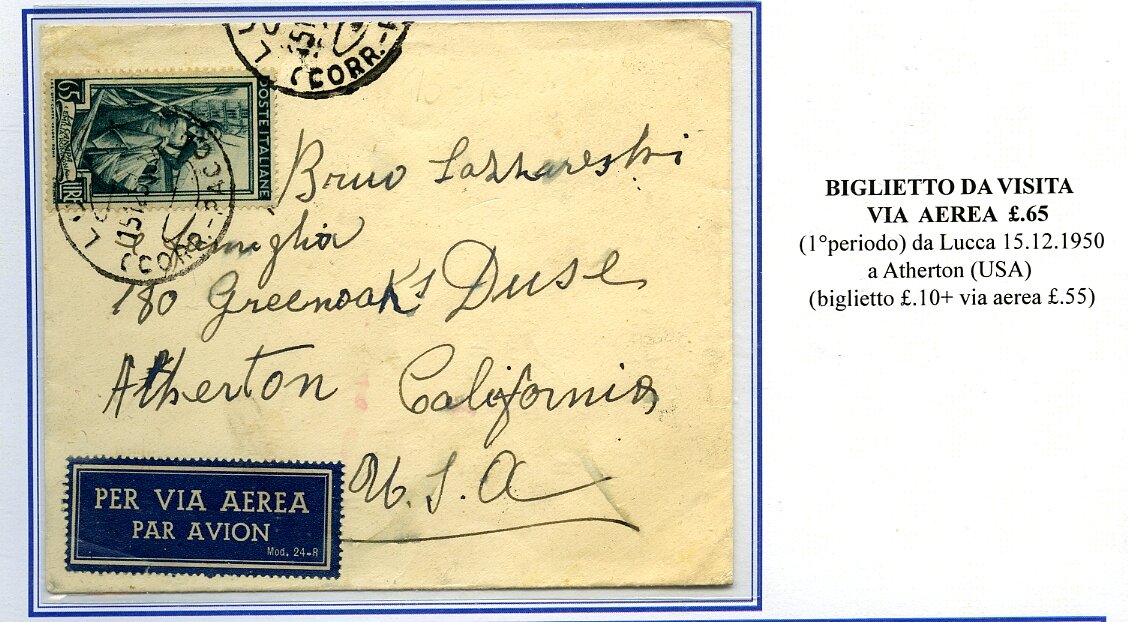 (CORR.-
65
POSTE ITALIANE
LIRE
(CORR.-PAC
Bruno Lazzareschi
e famiglia
180 Greenoaks Druse
Atherton California
U.S.A
PER VIA AEREA
PAR AVION
Mod. 24-B
BIGLIETTO DA VISITA
VIA AEREA £.65
(1°periodo) da Lucca 15.12.1950
a Atherton (USA)
(biglietto £.10+ via aerea £.55)